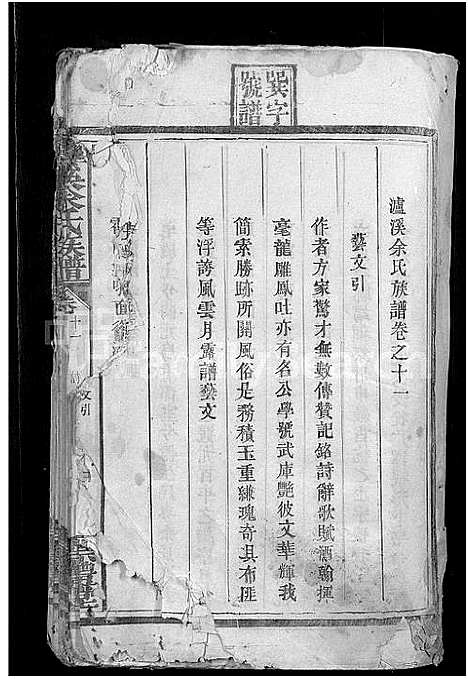 巽字
號譜
瀘溪余氏族譜卷之十一
藝文引
作者方家驚才無數傳贊記銘詩辭歌賦酒翰揮
毫龍雕鳳吐亦有名公學號武庫艷彼文華輝我
簡索勝跡所關風俗是務積玉重縑瑰奇具布匪
等浮誇風雲月露譜藝文
氏族譜
十一
文引